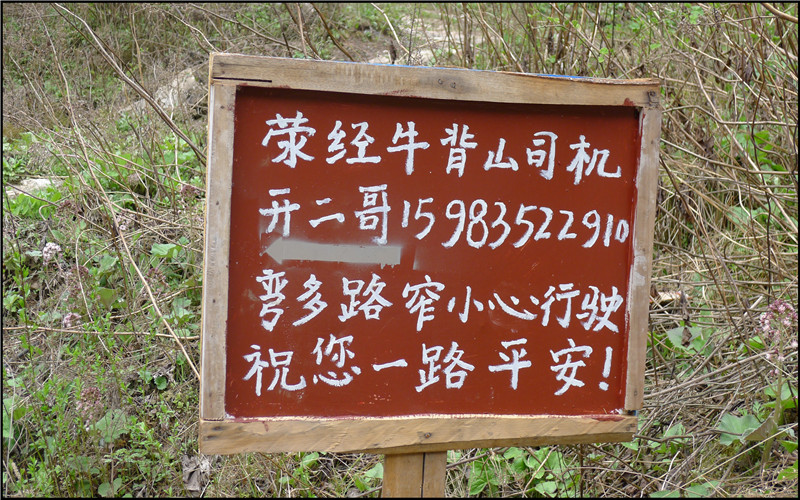 荥经牛背山司机
开二哥15983522910
弯多路窄小心行驶
祝您一路平安!